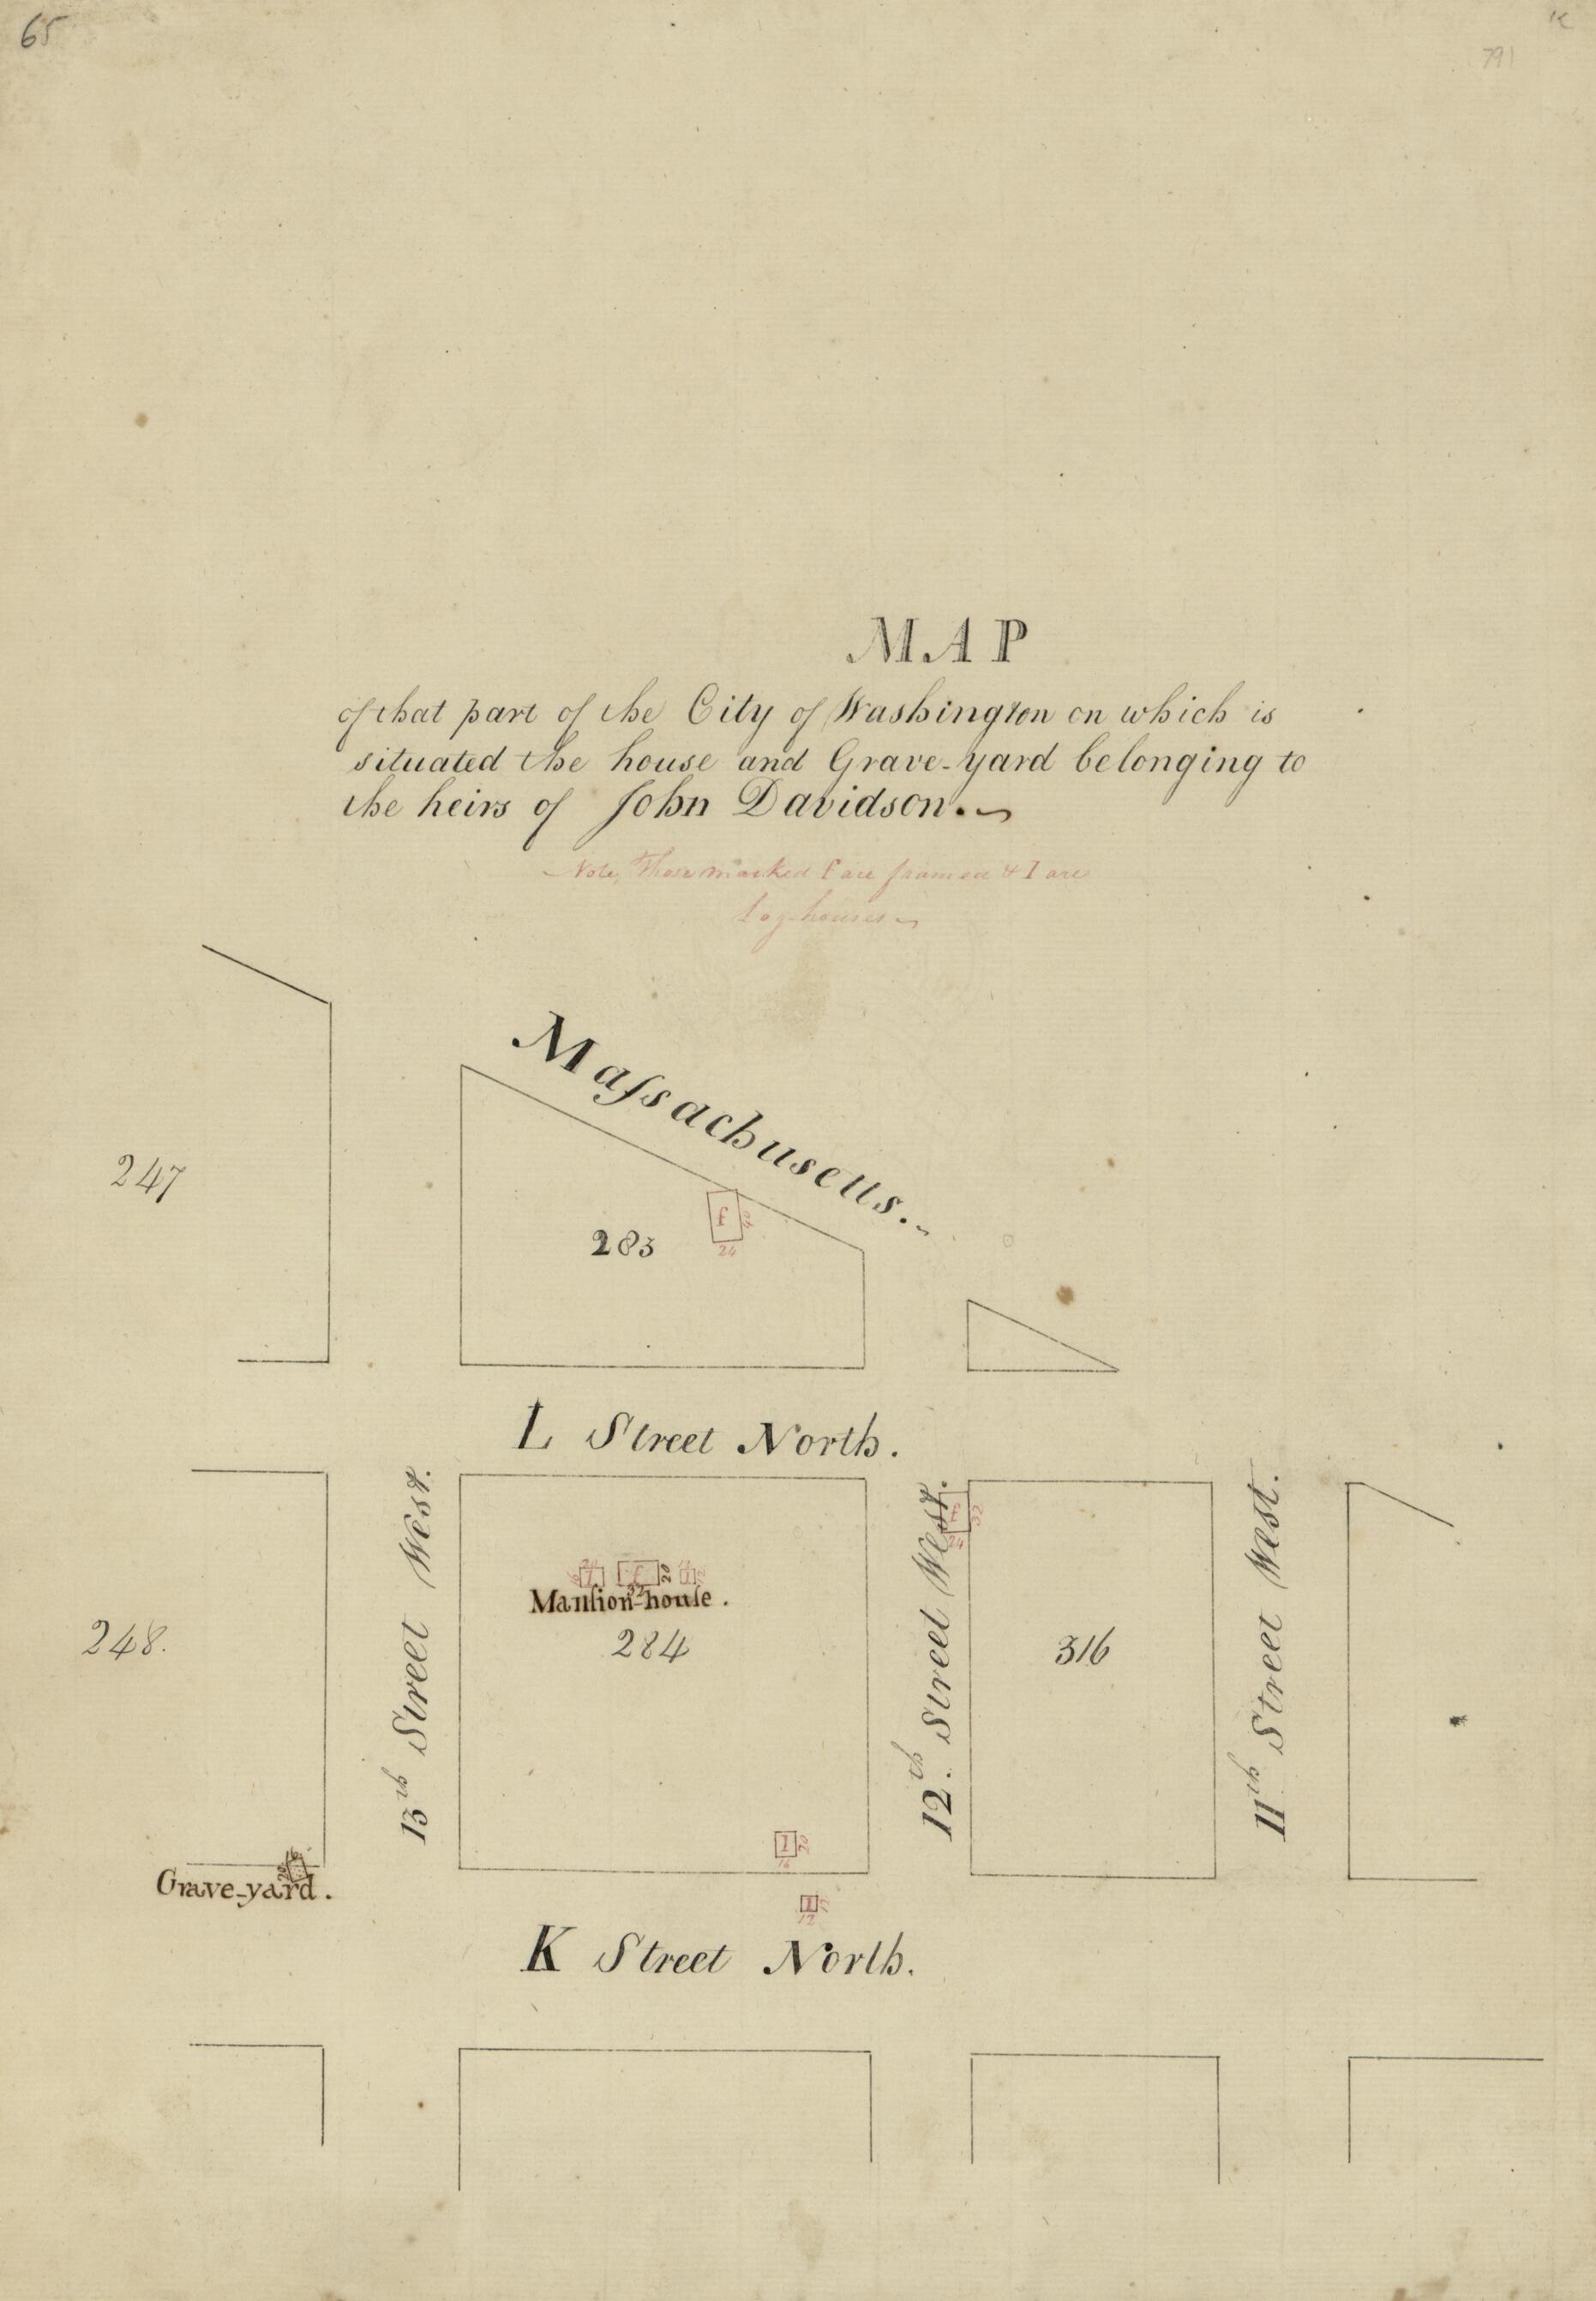 65
791
MAP
of that part of the City of Washington on which is
situated the house and Grave-yard belonging to
the heirs of John Davidson.
Note, Those marked f are framed & I are
log-houses
Maſsachusetts.
247
283
f
24
L Street North.
13th Street West.
12th Street West.
11th Street West.
f
32
24
f
20
32
Manſion-houſe.
248.
284
316
I
20
16
Grave-yard.
I
12
K Street North.